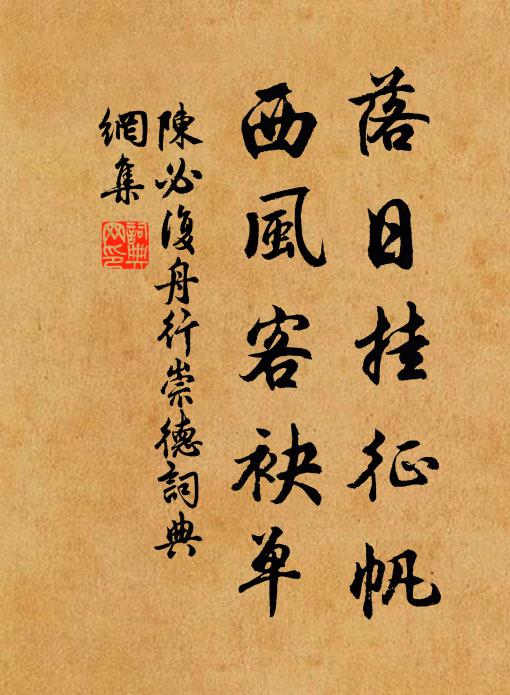 落日挂征帆
西風客袂单
陳必復舟行崇德詞典
網集
詞典
网印